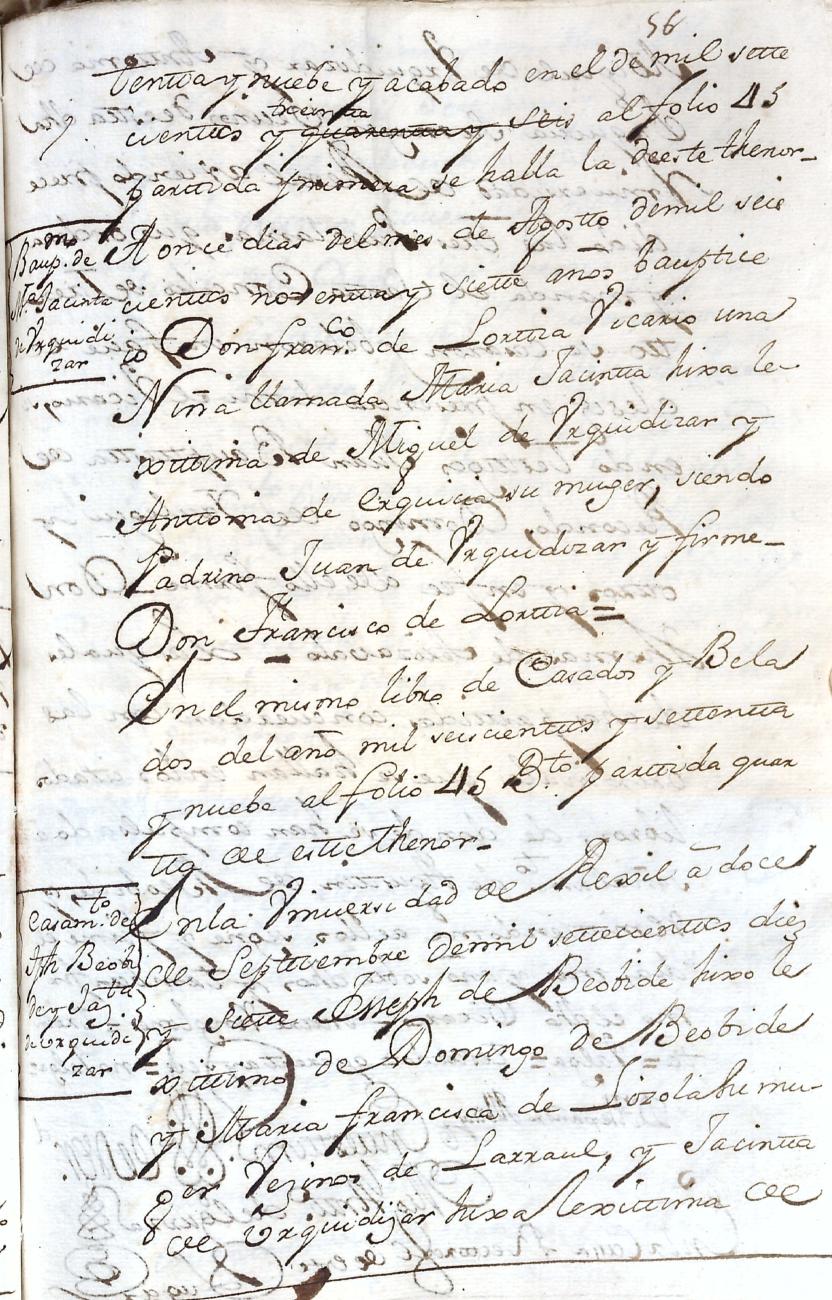 56
tentta y nuebe y acabado en el de mil sette
treintta
cienttos y quarentta y seis al folio 45
partida primera se halla la de este thenor
Baup.mo de
M.a Jacinta
de Vrquidi
zar
A once dias del mes de Agostto de mil seis
cienttos noventta y siette años bauptice
io Don fran.co de Lorttia Vicario una
Niña llamada Maria Jacintta hixa le
xittima de Miguel de Vrquidizar y
Anttonia de Erquicia su muger, siendo
Padrino Juan de Vrquidizar y firme
Don Francisco de Lorttia =
En el mismo libro de Casados y Bela
dos del año mil seiscienttos y settentta
y nuebe al folio 45 B.to parttida quar
tta de este thenor
Casam.to de
Jph Beobi
de y Ja.ta
de Vrquidi
zar
En la Vniversidad de Rexil â doce
de Septtiembre de mil settecienttos diez
y siette Joseph de Beobide hixo le
xittimo de Domingo de Beobide
y Maria francisca de Lozola su mu-
ger Vezinos de Larraul, y Jacintta
de Vrquidizar hixa lexittima de